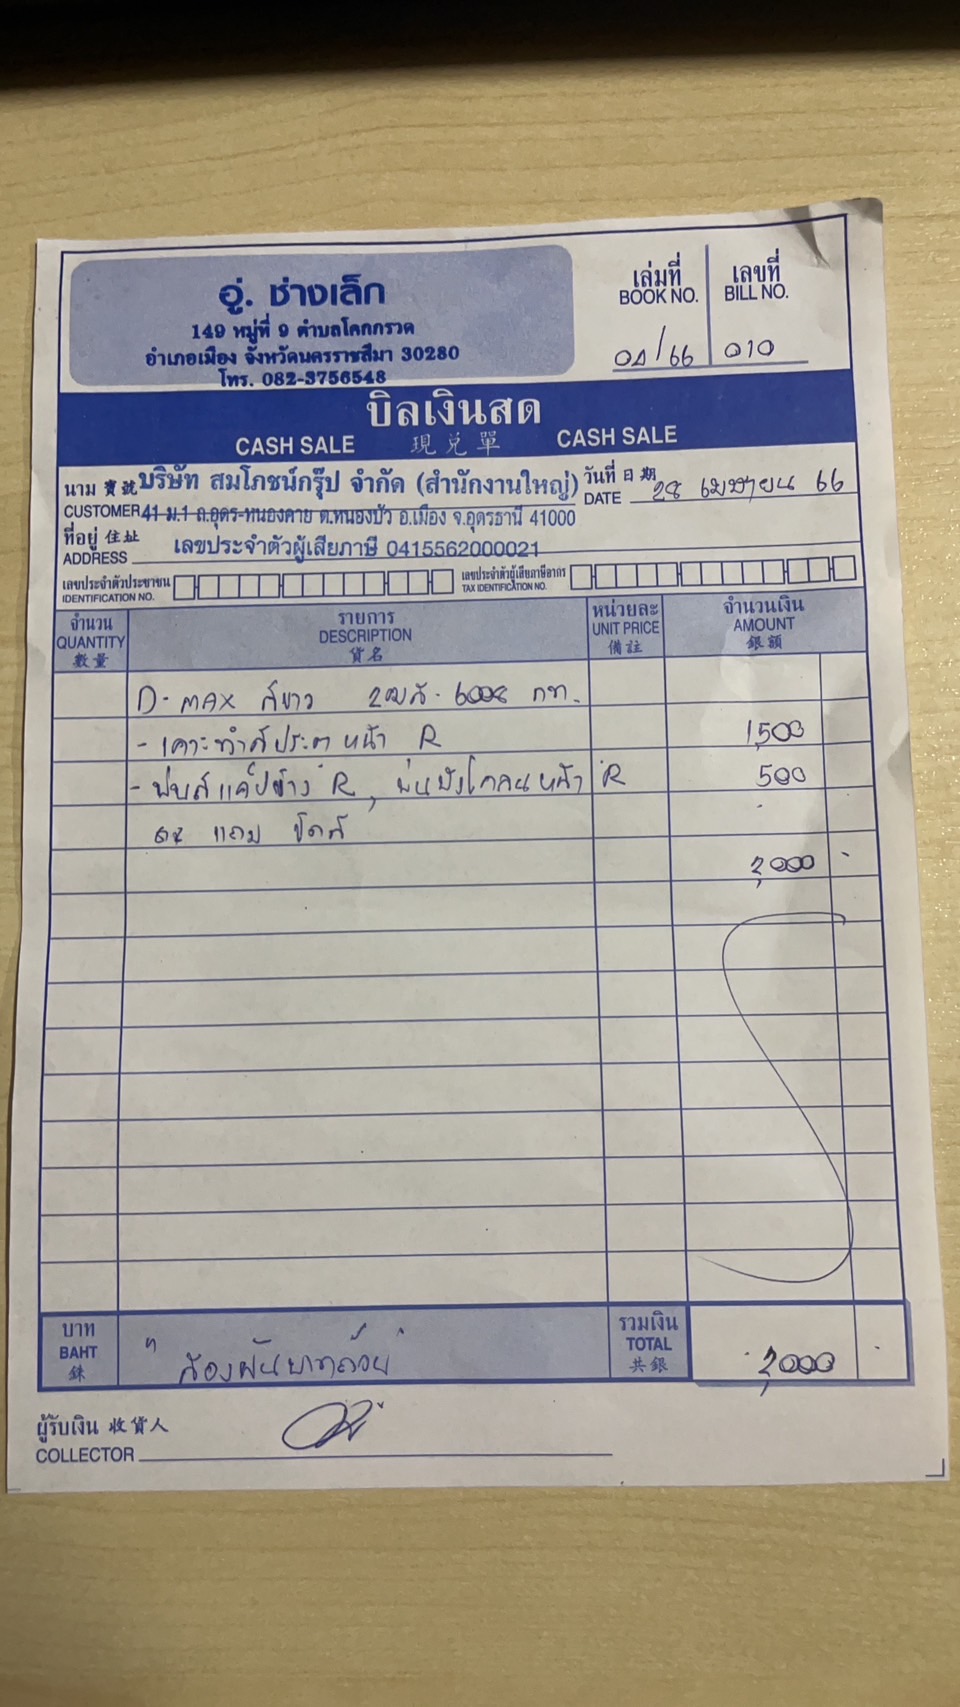 อู่. ช่างเล็ก
149 หมู่ที่ 9 ตำบลโคกกรวด
อำเภอเมือง จังหวัดนครราชสีมา 30280
โทร. 082-3756548
เล่มที่ เลขที่
BOOK NO. BILL NO.
04/66 010
บิลเงินสด
CASH SALE 現兌單 CASH SALE
นาม 寶號 บริษัท สมโภชน์กรุ๊ป จำกัด (สำนักงานใหญ่) วันที่ 日期
CUSTOMER 41 ม.1 ถ.อุดร-หนองคาย ต.หนองบัว อ.เมือง จ.อุดรธานี 41000 DATE 28 เมษายน 66
ที่อยู่ 住址
ADDRESS เลขประจำตัวผู้เสียภาษี 0415562000021
เลขประจำตัวประชาชน เลขประจำตัวผู้เสียภาษีอากร
IDENTIFICATION NO. TAX IDENTIFICATION NO.
จำนวน รายการ หน่วยละ จำนวนเงิน
QUANTITY DESCRIPTION UNIT PRICE AMOUNT
數量 貨名 備註 銀額
D-MAX สีขาว กท.
- เคาะทำสีประตูหน้า R 1,500
- พ่นสีแค๊ปข้าง R, พ่นบังโคลนหน้า R 500
แถม ขัดสี
2,000 -
บาท รวมเงิน
BAHT " สองพันบาทถ้วน " TOTAL 2,000 -
銖 共銀
ผู้รับเงิน 收貨人
COLLECTOR